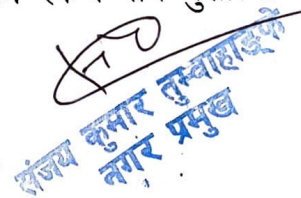 संजय कुमार तुम्बाहाङ्फे
नगर प्रमुख